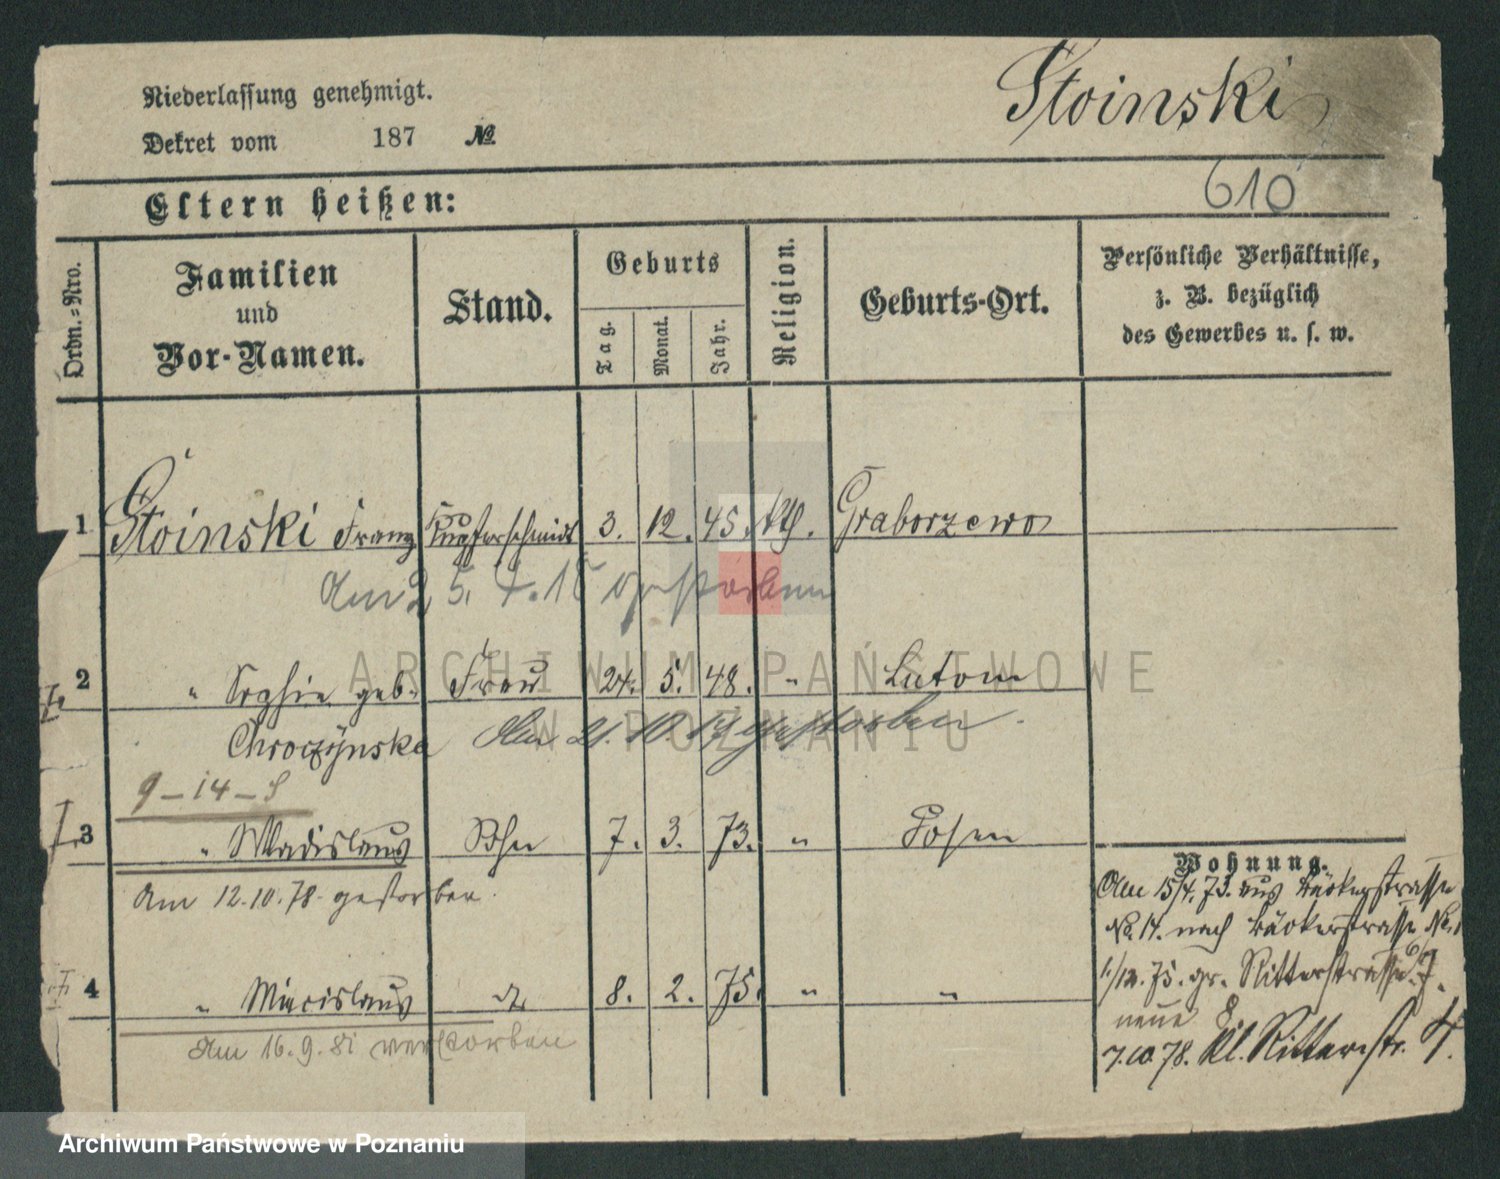 Niederlassung genehmigt.
Stoinski
Dekret vom 187 №
610
Eltern heißen:
Ordn.-Nro.
Familien und Vor-Namen.
Stand.
Geburts
Tag.
Monat.
Jahr.
Religion.
Geburts-Ort.
Persönliche Verhältnisse, z. B. bezüglich des Gewerbes u. s. w.
1 Stoinski Franz Kupferschmidt 3. 12. 45. kth. Graborzewo
Am 25. 4. gestorben
2 " Sophie geb. Frau 24. 5. 48. " Lutom
Chroczynska Am 21. 10. 19 gestorben.
9-14-S
3 " Wladislaus Sohn 7. 3. 73. " Posen
Am 12.10.78. gestorben.
4 " Miecislaus do 8. 2. 75. " "
Am 16.9.81 verstorben
Wohnung.
Am 15/4. 73. aus Bäckerstrasse
No. 14. nach Bäckerstrasse No.
1/12. 75. gr. Ritterstrasse 7.
neue 8
7.10.78. kl. Ritterstr. 4.
ARCHIWUM PAŃSTWOWE
W POZNANIU
Archiwum Państwowe w Poznaniu